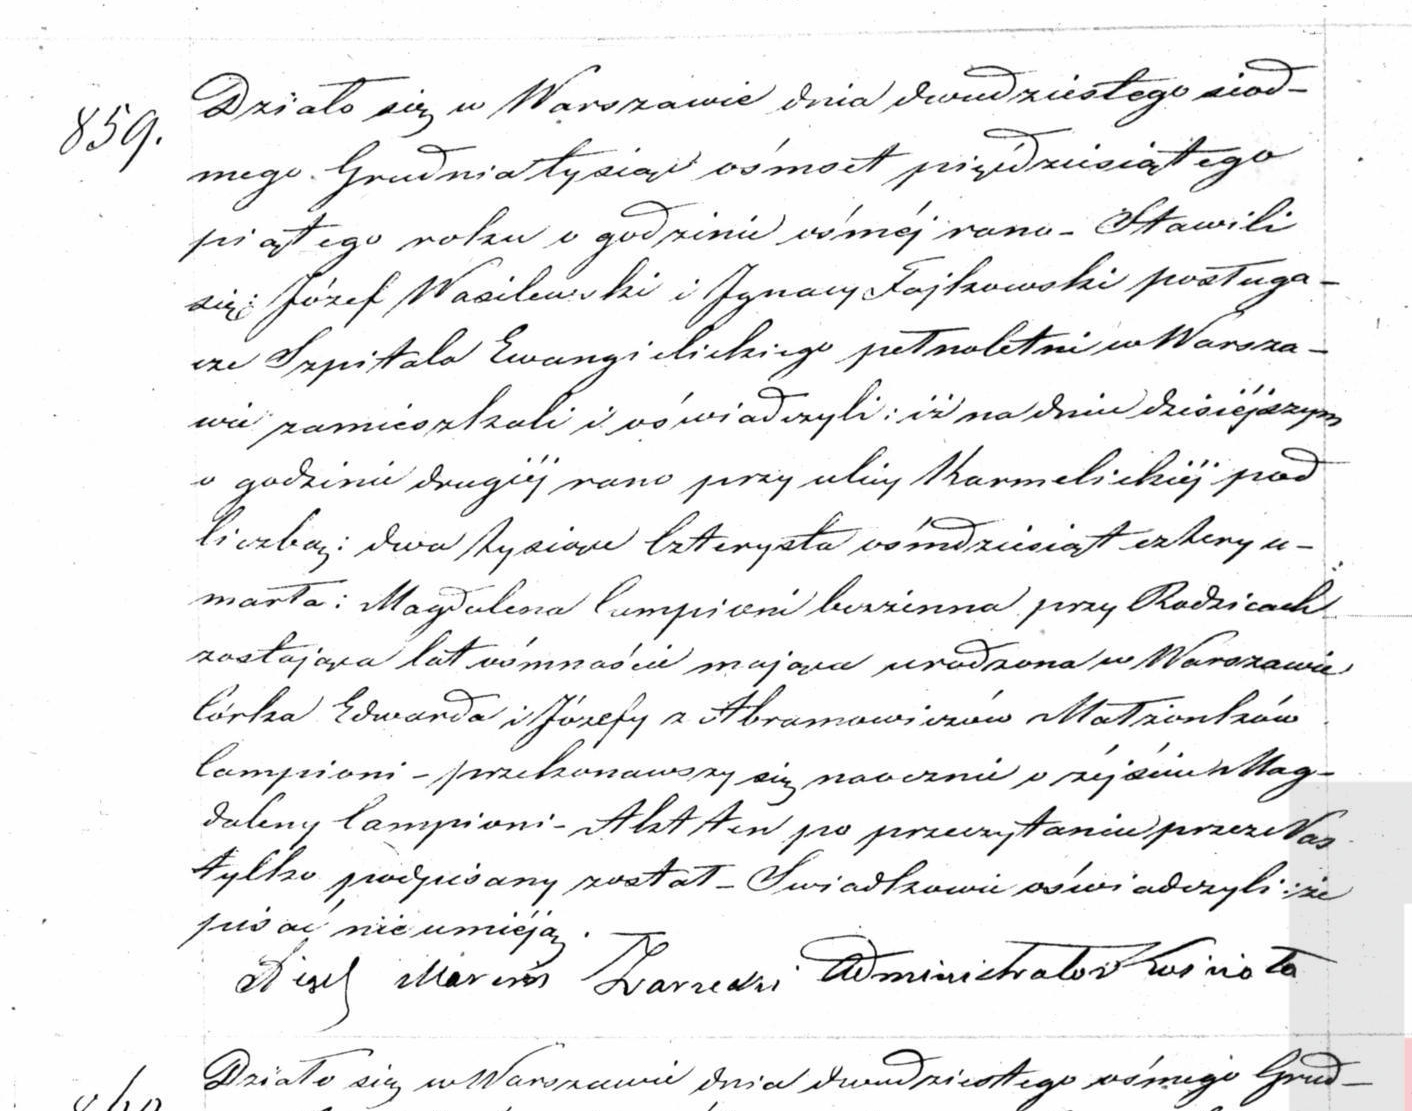 859.
Działo się w Warszawie dnia dwudziestego siod-
mego Grudnia tysiąc ośmset pięćdziesiątego
piątego roku o godzinie ósméj rano – Stawili
się: Józef Wasilewski i Ignacy Fajkowski posługa-
cze Szpitala Ewangielickiego pełnoletni w Warsza-
wie zamieszkali i oświadczyli: iż na dniu dzisiéjszym
o godzinie drugiéj rano przy ulicy Karmelickiéj pod
liczbą: dwa tysiące Czterysta ośmdziesiąt cztery u-
marła: Magdalena Campioni bezżenna przy Rodzicach
zostająca lat ośmnaście mająca urodzona w Warszawie
Córka Edwarda i Józefy z Abramowiczów Małżonków
Campioni – przekonawszy się naocznie o zéjściu Mag-
daleny Campioni – Akt ten po przeczytaniu przez Nas
tylko podpisany został – Swiadkowie oświadczyli: że
pisać nie umiéją.
Marcin Zarzecki Administrator Kościoła
Działo się w Warszawie dnia dwudziestego ósmego Grud-